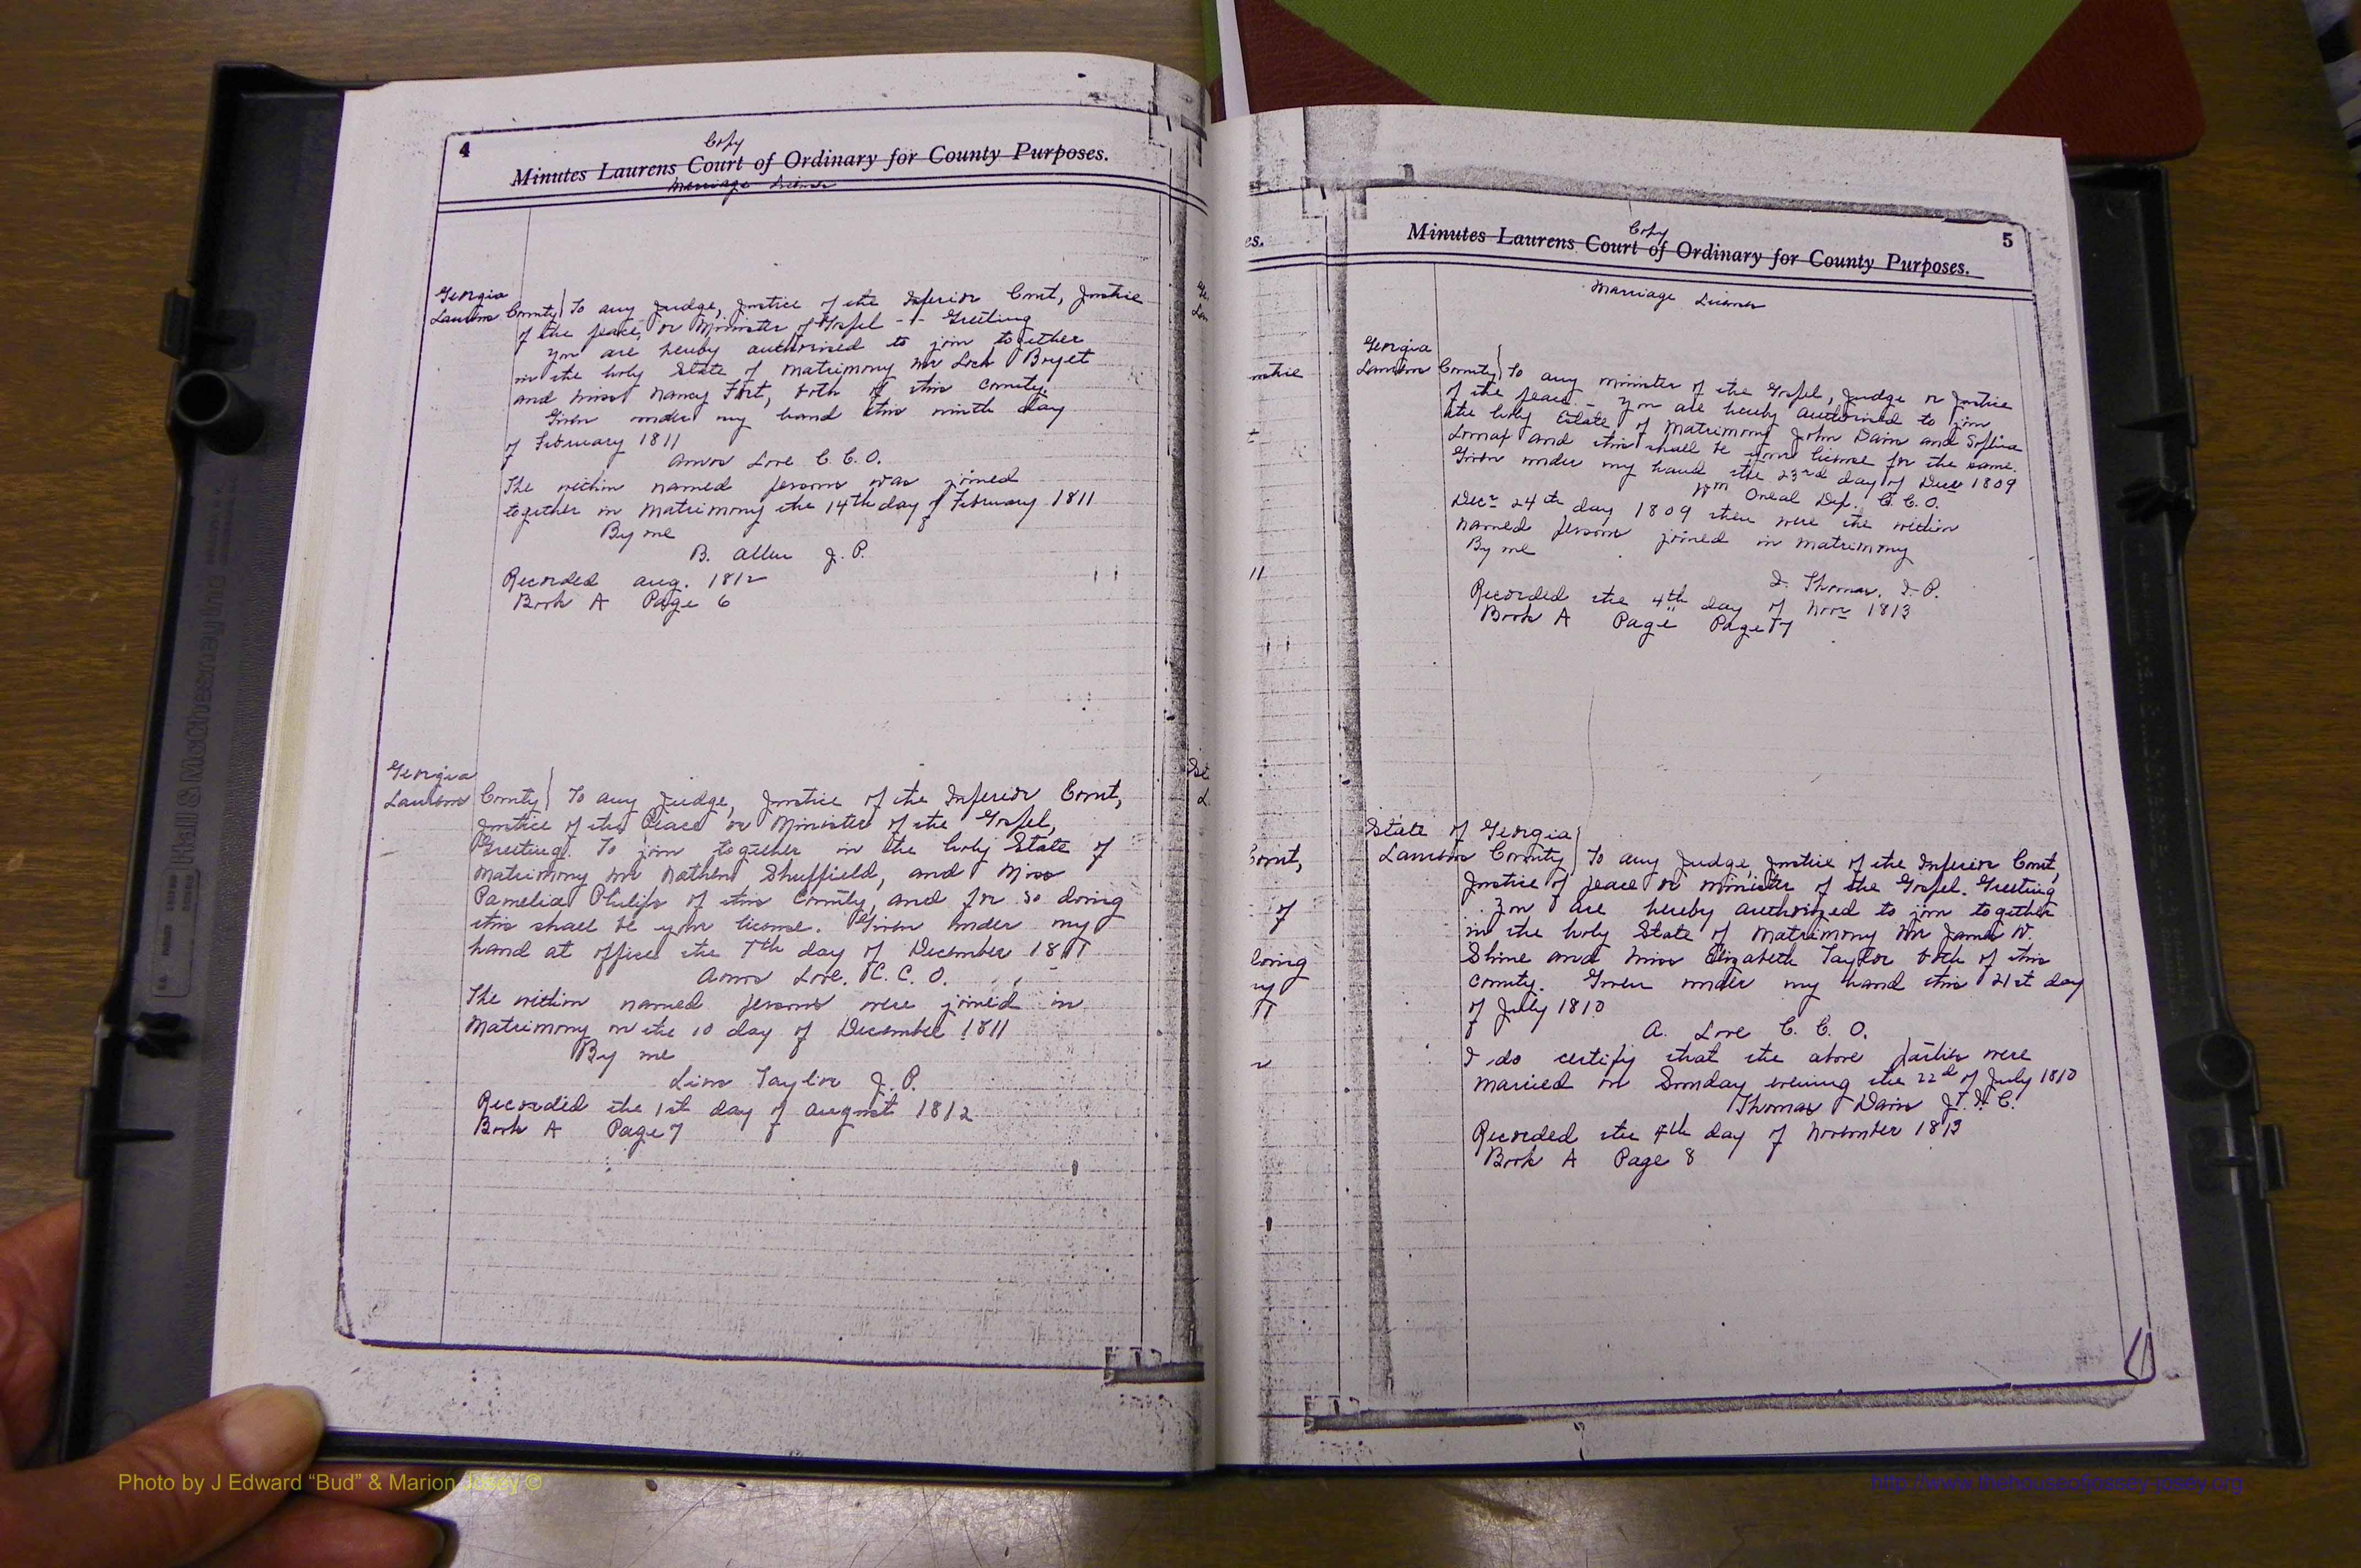 4
Copy
Minutes Laurens Court of Ordinary for County Purposes.
Marriage License
Georgia
Laurens County) To any Judge, Justice of the Inferior Court, Justice
of the peace, or Minister of Gospel - Greeting
You are hereby authorised to join together
in the holy State of Matrimony Mr Lock
and Miss Nancy Fort, both of this County.
Given under my hand this ninth day
of February 1811
Amos Love C. C. O.
The within named persons was joined
together in Matrimony the 14th day of February 1811
By me
B. Allen J. P.
Recorded Aug. 1812
Book A Page 6
Georgia
Laurens County) To any Judge, Justice of the Inferior Court,
Justice of the Peace or Minister of the Gospel,
Greeting. To join together in the holy State of
Matrimony Mr Nathen Sheffield, and Miss
Pamelia Philips of this County, and for so doing
this shall be your license. Given under my
hand at office the 7th day of December 1811
Amos Love, C. C. O.
The within named persons were joined in
Matrimony on the 10 day of December 1811
By me
Taylor J. P.
Recorded the 1st day of August 1812
Book A Page 7
Copy
5
Minutes Laurens Court of Ordinary for County Purposes.
Marriage License
Georgia
Laurens County) To any minister of the Gospel, Judge or Justice
of the peace - You are hereby authorised to join
the holy Estate of Matrimony John Dain and Sophia
Lomax and this shall be your license for the same.
Given under my hand the 23rd day of Decr 1809
Wm Oneal Dep. C. C. O.
Decr 24th day 1809 then were the within
named persons joined in matrimony
By me
Thomas, J. P.
Recorded the 4th day of Novr 1813
Book A Page Page 7
State of Georgia)
Laurens County) To any Judge, Justice of the Inferior Court,
Justice of peace or Minister of the Gospel. Greeting
You are hereby authorized to join together
in the holy State of Matrimony Mr James W.
Shine and Miss Elizabeth Taylor both of this
County. Given under my hand this 21st day
of July 1810
A. Love C. C. O.
I do certify that the above parties were
married on Sunday evening the 22d of July 1810
Thomas Dain J. I. C.
Recorded the 4th day of November 1813
Book A Page 8
Hall & McChesney Inc
Photo by J Edward “Bud” & Marion Josey ©
http://www.thehouseofjossey-josey.org